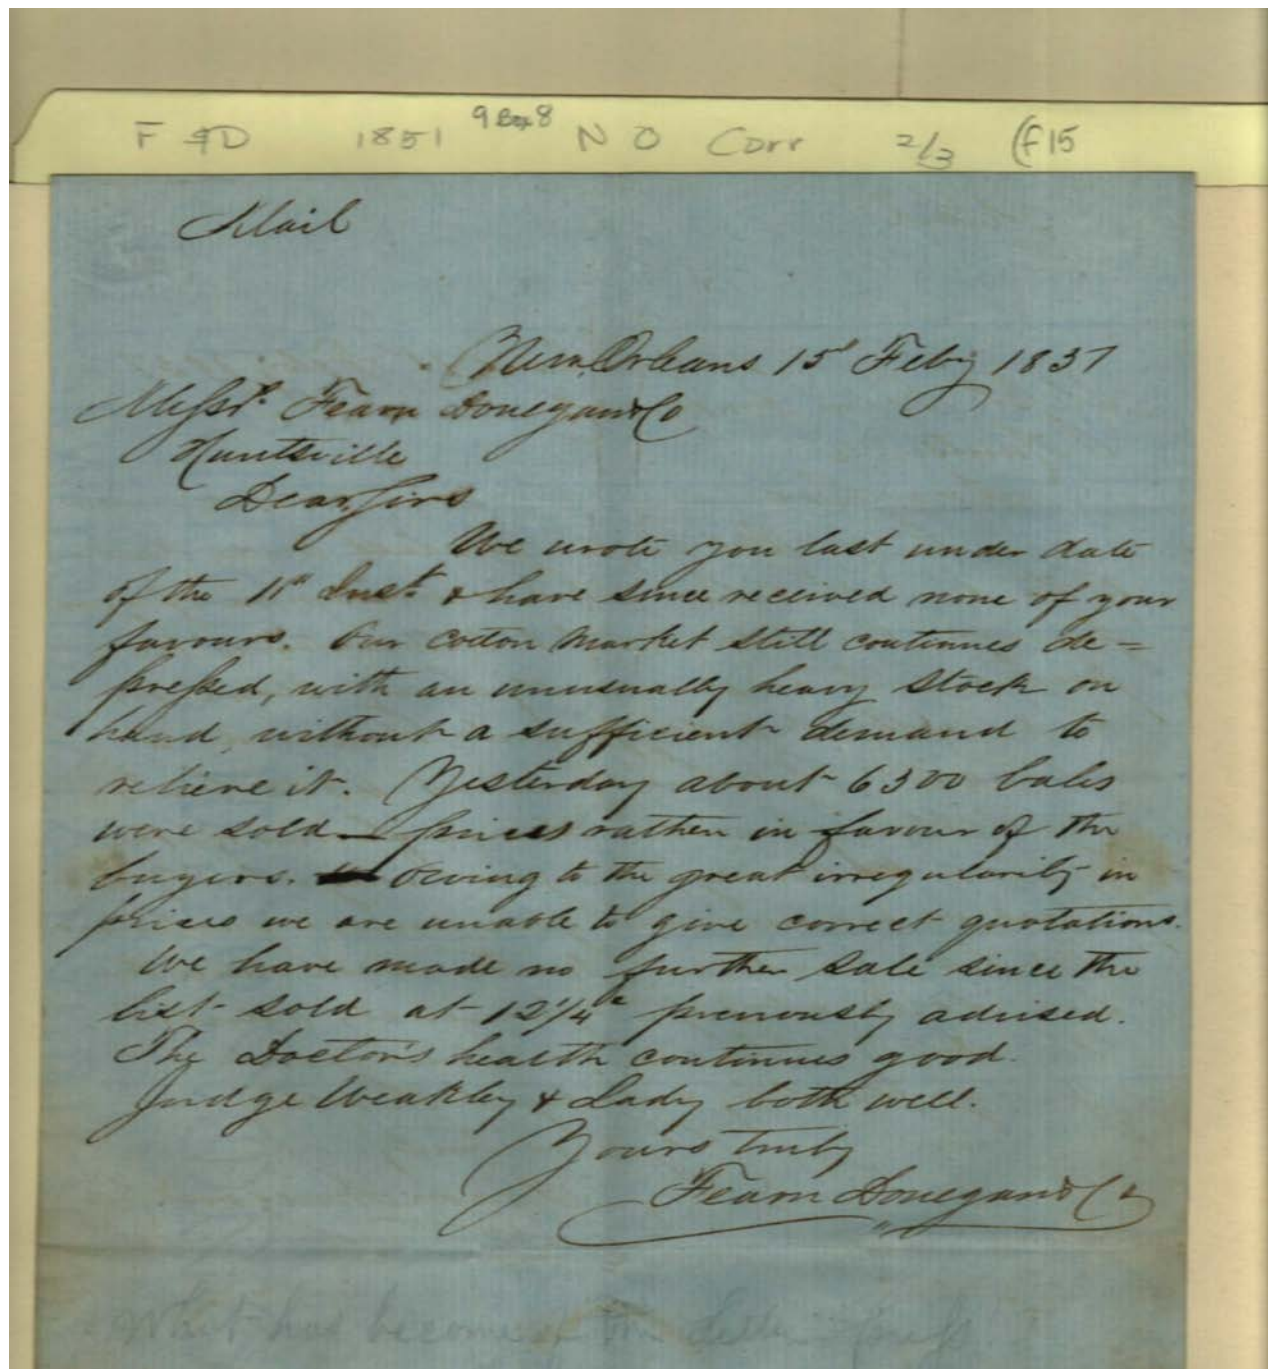 F & D 1851 9 Box 8 N O Corr 2/3 (f15
Mail
New Orleans 15' Feby 1837
Messrs. Fearn Donegan & Co
Huntsville
Dear Sirs
We wrote you last under date
of the 11th Inst. & have since received none of your
favours. Our cotton market still continues de=
pressed, with an unusually heavy stock on
hand, without a sufficient demand to
relieve it. Yesterday about 6300 bales
were sold — prices rather in favour of the
buyers. Owing to the great irregularity in
prices we are unable to give correct quotations.
We have made no further sale since the
list sold at 12 1/4 c previously advised.
The Doctor's health continues good.
Judge Weakley & Lady both well.
Yours truly
Fearn Donegan & Co
What has become of the letter press